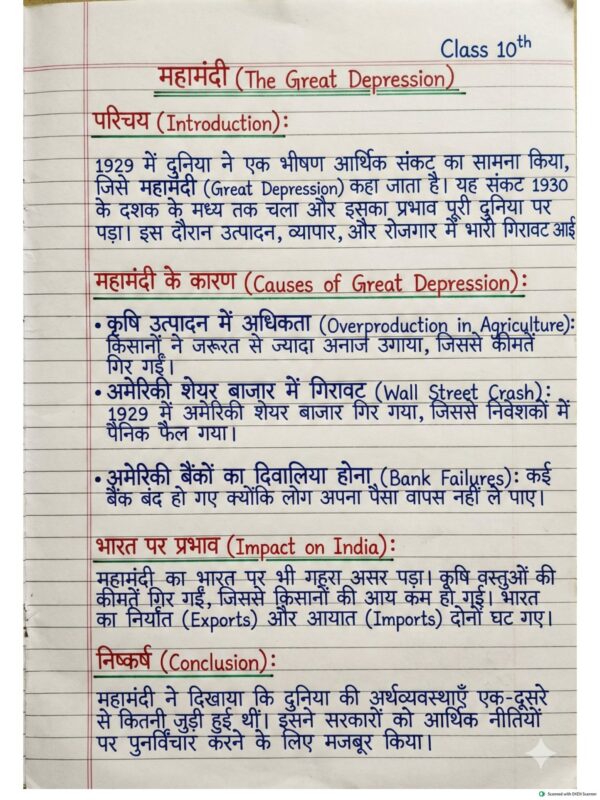 Class 10th
महामंदी (The Great Depression)
परिचय (Introduction):
1929 में दुनिया ने एक भीषण आर्थिक संकट का सामना किया,
जिसे महामंदी (Great Depression) कहा जाता है। यह संकट 1930
के दशक के मध्य तक चला और इसका प्रभाव पूरी दुनिया पर
पड़ा। इस दौरान उत्पादन, व्यापार, और रोजगार में भारी गिरावट आई
महामंदी के कारण (Causes of Great Depression):
• कृषि उत्पादन में अधिकता (Overproduction in Agriculture):
किसानों ने जरूरत से ज्यादा अनाज उगाया, जिससे कीमतें
गिर गईं।
• अमेरिकी शेयर बाजार में गिरावट (Wall Street Crash):
1929 में अमेरिकी शेयर बाजार गिर गया, जिससे निवेशकों में
पैनिक फैल गया।
• अमेरिकी बैंकों का दिवालिया होना (Bank Failures): कई
बैंक बंद हो गए क्योंकि लोग अपना पैसा वापस नहीं ले पाए।
भारत पर प्रभाव (Impact on India):
महामंदी का भारत पर भी गहरा असर पड़ा। कृषि वस्तुओं की
कीमतें गिर गईं, जिससे किसानों की आय कम हो गई। भारत
का निर्यात (Exports) और आयात (Imports) दोनों घट गए।
निष्कर्ष (Conclusion):
महामंदी ने दिखाया कि दुनिया की अर्थव्यवस्थाएँ एक-दूसरे
से कितनी जुड़ी हुई थीं। इसने सरकारों को आर्थिक नीतियों
पर पुनर्विचार करने के लिए मजबूर किया।
Scanned with OKEN Scanner